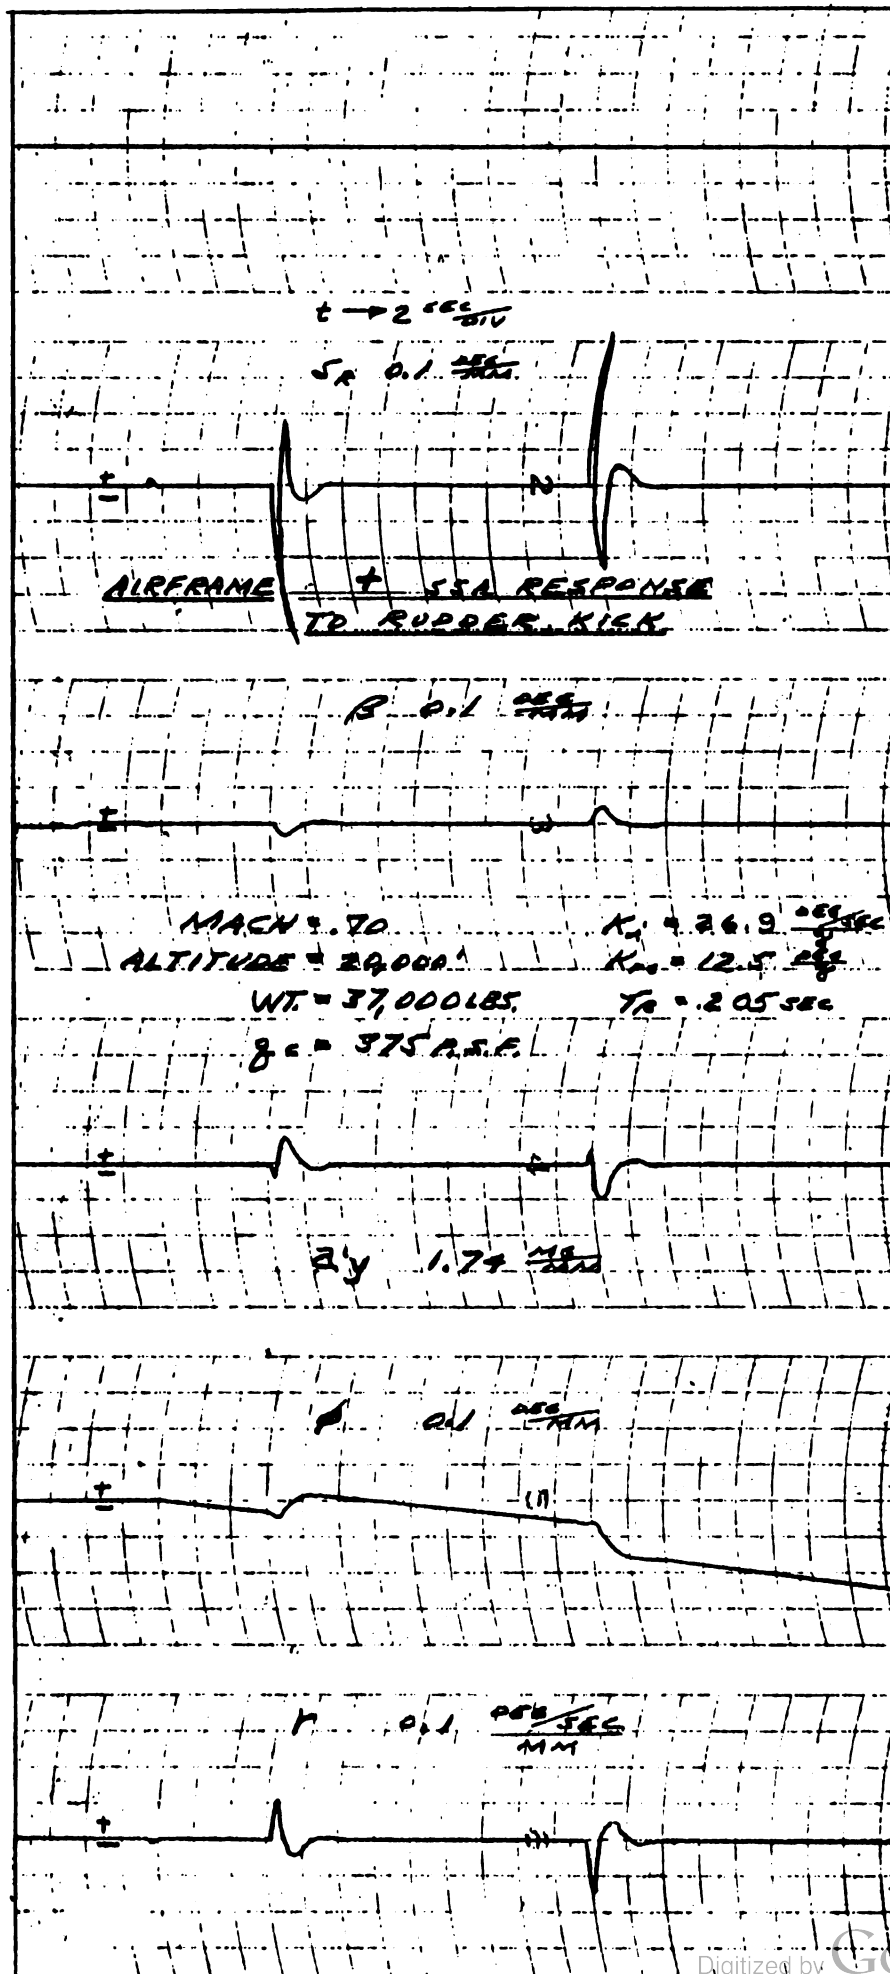 t → 2 SEC/DIV
δR 0.1 DEG/MM
+
-
2
AIRFRAME + SSA RESPONSE
TO RUDDER KICK
β 0.1 DEG/MM
+
-
3
MACH = .70
ALTITUDE = 20,000'
WT. = 37,000 LBS.
qc = 375 P.S.F.
= 26.9 DEG/SEC/g
= 12.5 DEG/g
TR = .205 SEC
+
-
4
a'y 1.74 MG/MM
ø 0.1 DEG/MM
+
-
5
r 0.1 DEG/SEC/MM
+
-
Digitized by Go